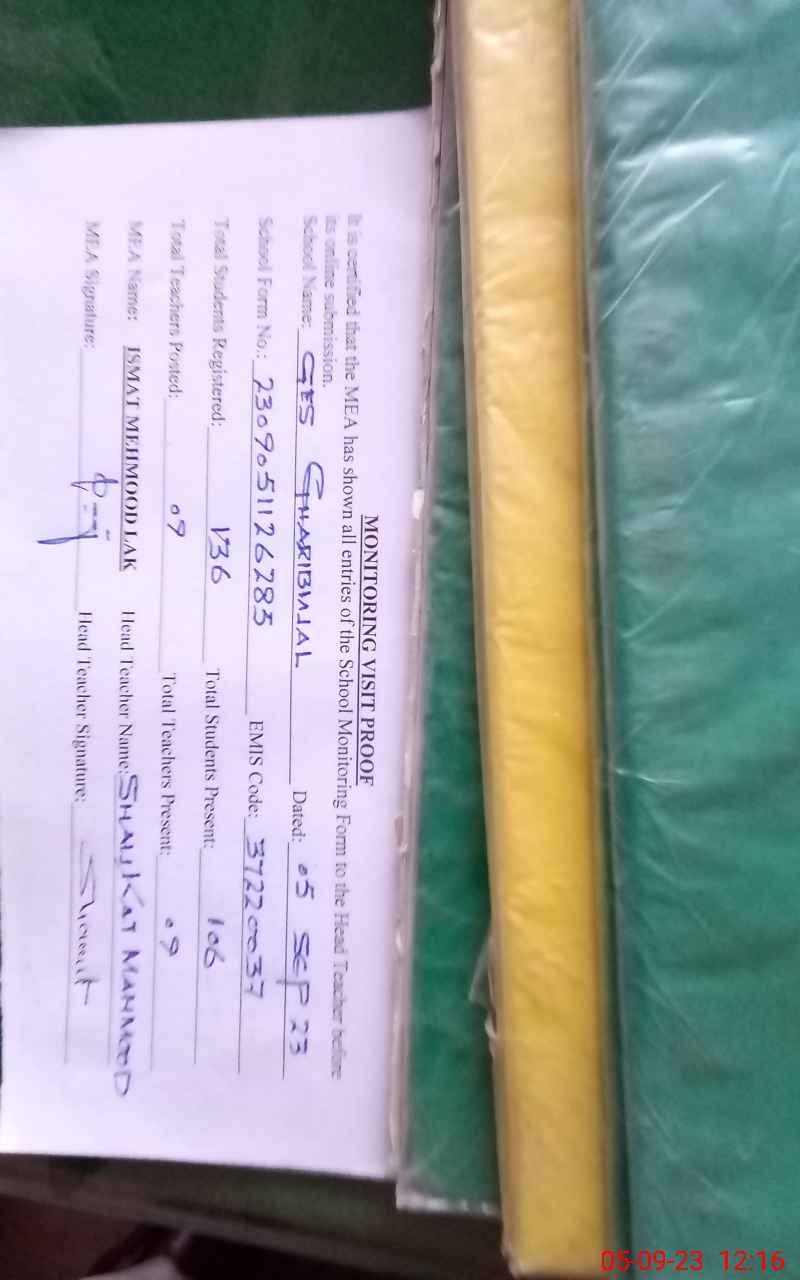 MONITORING VISIT PROOF
It is certified that the MEA has shown all entries of the School Monitoring Form to the Head Teacher before
its online submission.
School Name: GES GHARIBWAL Dated: 05 SEP 23
School Form No.: 2309051126283 EMIS Code: 37220037
Total Students Registered: 136 Total Students Present: 106
Total Teachers Posted: 09 Total Teachers Present: 09
MEA Name: ISMAT MEHMOOD LAK Head Teacher Name: SHAUKAT MAHMOOD
MEA Signature: Head Teacher Signature:
05-09-23 12:16